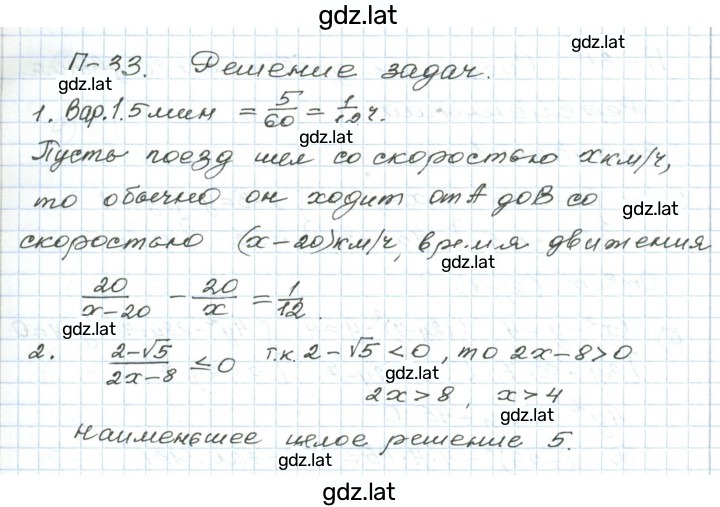 gdz.lat
gdz.lat
П-33. Решение задач.
gdz.lat
1. Вар.1. 5 мин = 5/60 = 1/12 ч.
gdz.lat
Пусть поезд шел со скоростью x км/ч,
то обычно он ходит от A до B со
gdz.lat
скоростью (x-20) км/ч, время движения
gdz.lat
20/(x-20) - 20/x = 1/12.
gdz.lat
2. (2-√5)/(2x-8) ≤ 0 т.к. 2-√5 < 0, то 2x-8>0
gdz.lat
2x > 8, x > 4
gdz.lat
наименьшее целое решение 5.
gdz.lat
gdz.lat